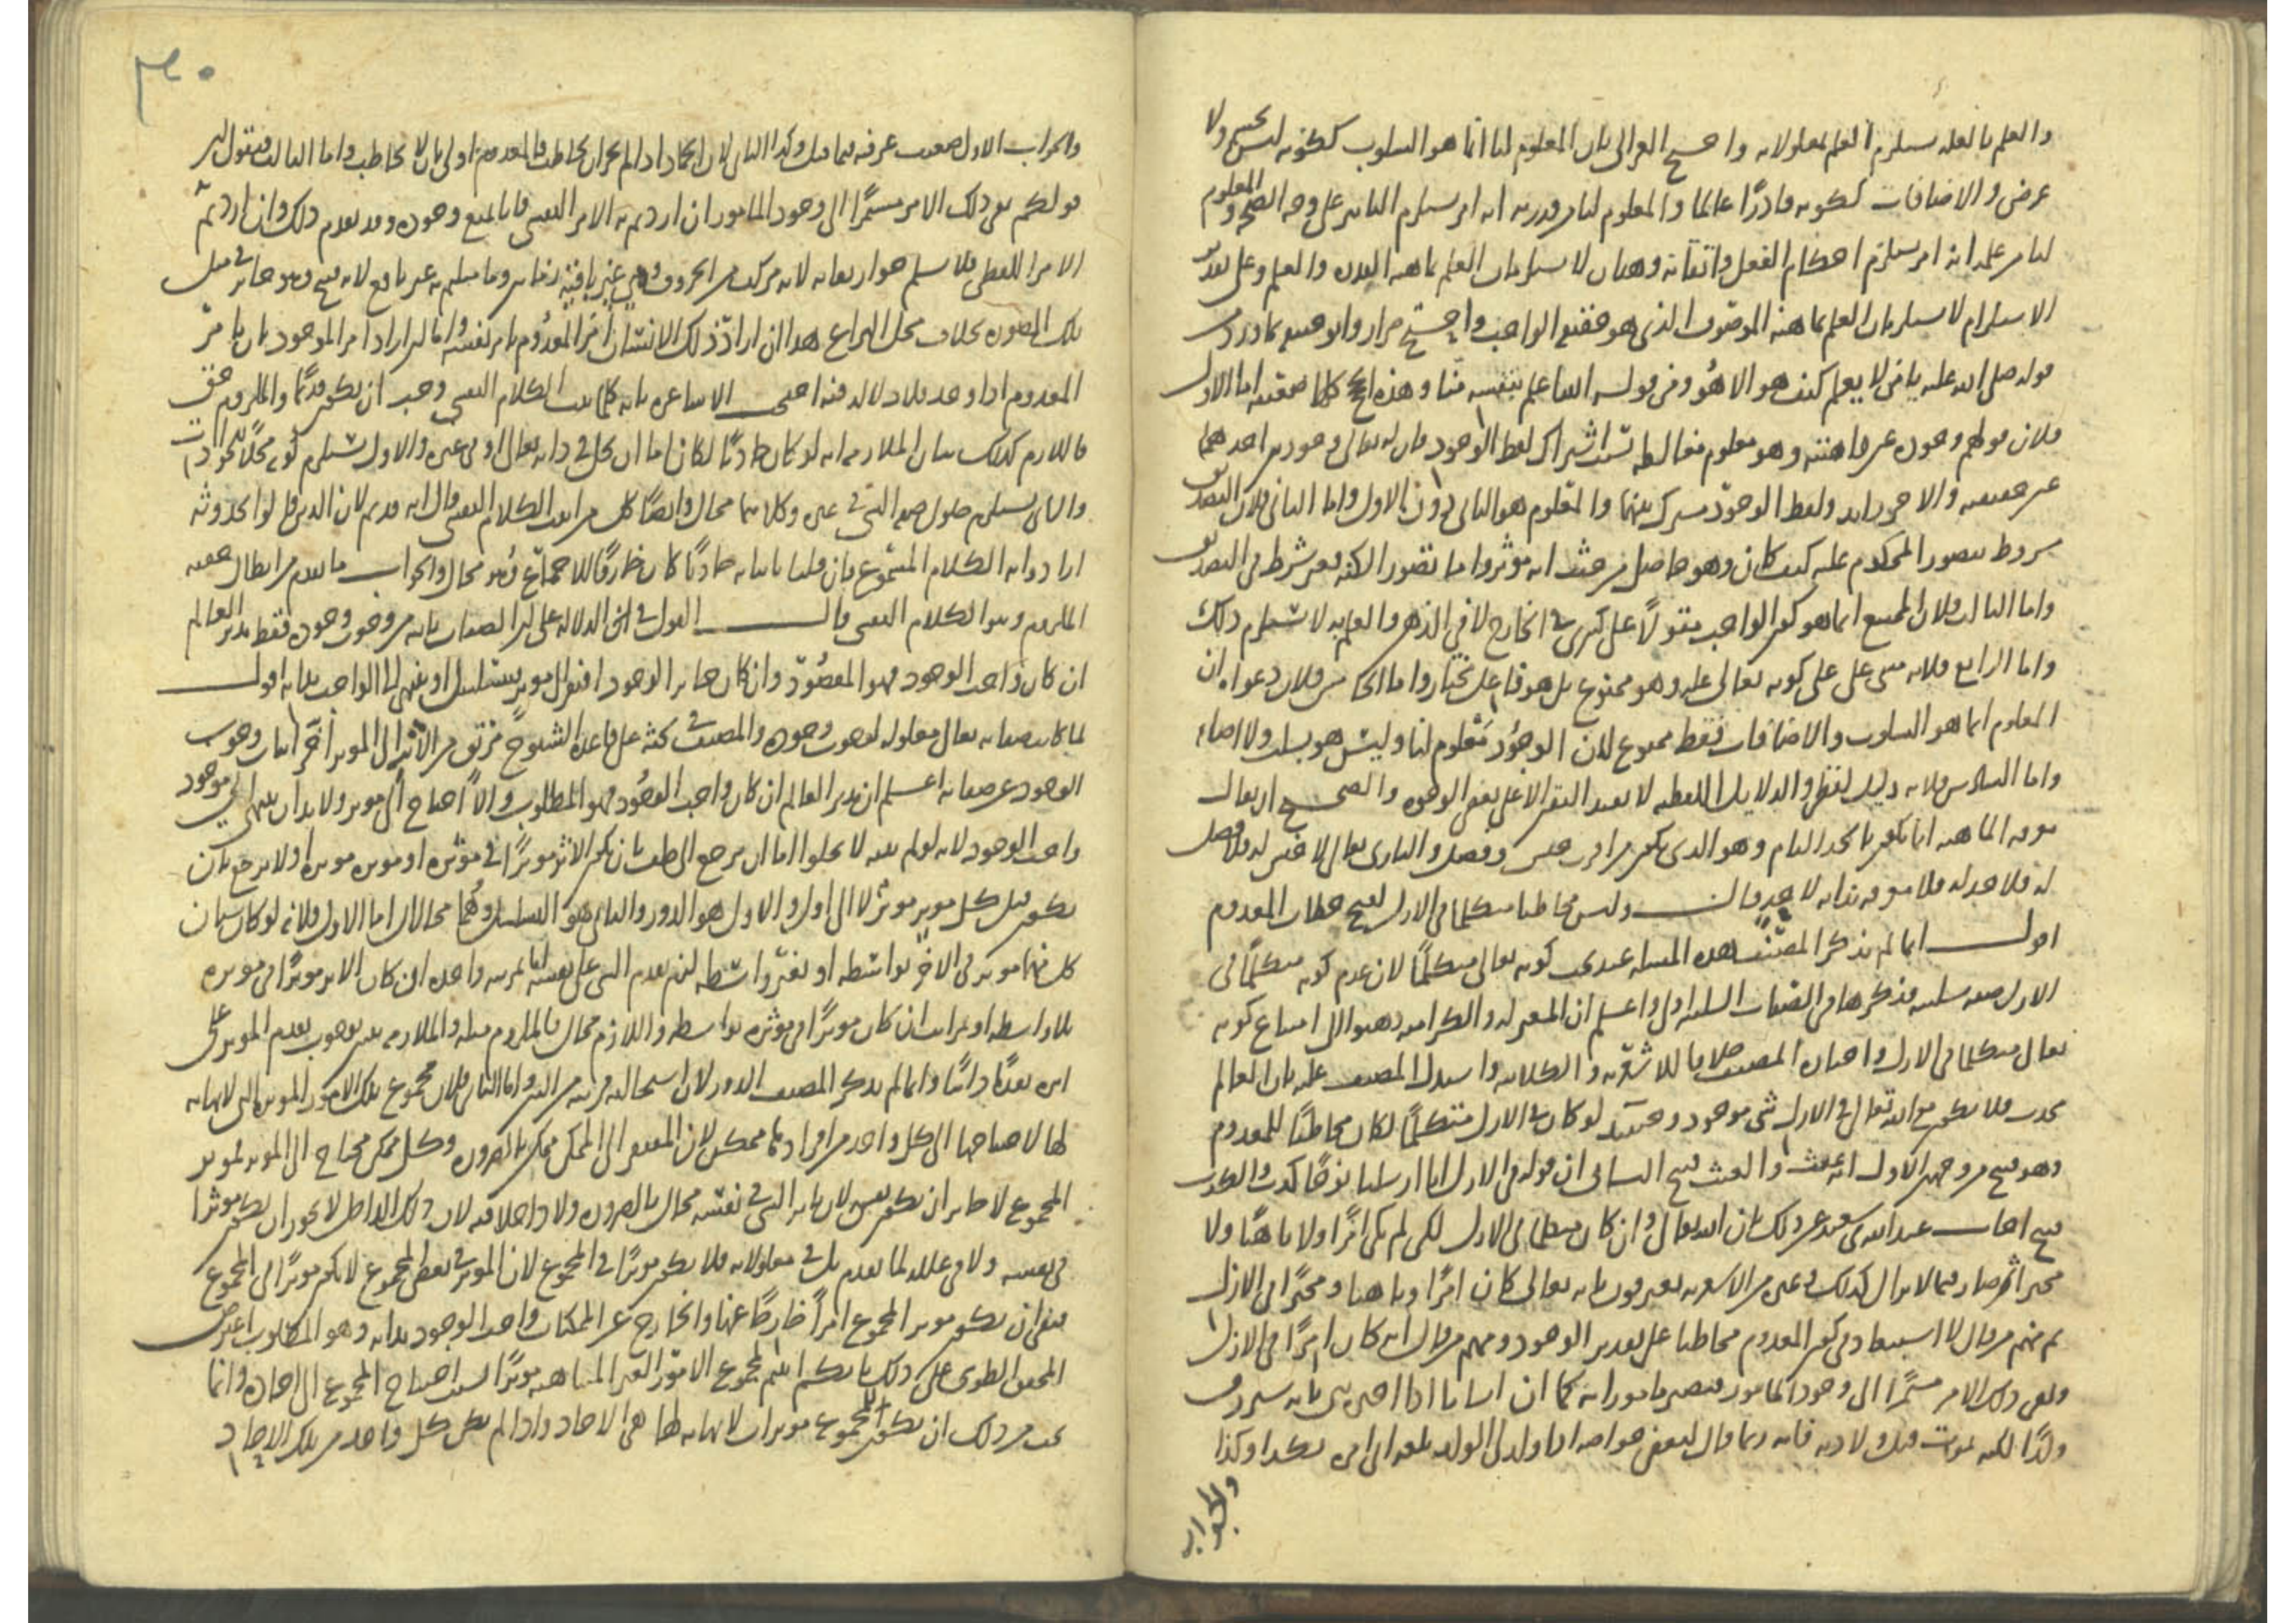 والعلم بالعلة يستلزم العلم بمعلولاته واحتج الغزالى بان المعلوم لنا انما هو السلوب ككونه ليس بجسم ولا
عرض والاضافات ككونه قادرًا عالما والمعلوم لنا من قدرته انه امر يستلزم التاثير على وجه الصحة والمعلوم
لنا من علمه انه امر يستلزم احكام الفعل واتقانه وهذان لا يستلزمان العلم بماهية القدرة والعلم وعلى تقدير
الاستلزام لا يستلزمان العلم بماهية الموصوف الذى هو حقيقة الواجب واحتج ضرار وابو حنيفة بما ورد من
قوله صلى الله عليه يا من لا يعلم كيف هو الا هو ومن قوله انت اعلم بنفسه منا وهذه الحجج كلها ضعيفة اما الاول
فلان قولهم وجوده عين ماهيته وهو معلوم مغالطة بسبب اشتراك لفظ الوجود فان له تعالى وجودين احدهما
عين حقيقته والاخر زايد ولفظ الوجود مشترك بينهما والمعلوم هو الثانى دون الاول واما الثانى فلان التصديق
مشروط بتصور المحكوم عليه كيف كان وهو حاصل من حيث انه موثر واما تصور الكنه فغير شرط فى التصديق
واما الثالث فلان الممتنع انما هو كون الواجب مقولًا على كثيرين فى الخارج لا فى الذهن والعلم به لا يستلزم ذلك
واما الرابع فلانه مبنى على كونه تعالى علة وهو ممنوع بل هو فاعل مختار واما الخامس فلان دعواه ان
المعلوم انما هو السلوب والاضافات فقط ممنوع لان الوجود معلوم لنا وليس هو بسلب ولا اضافة
واما السادس فلانه دليل لفظى والدلايل اللفظية لا تفيد اليقين الا على بعض الوجوه والصحيح ان يقال
معرفة الماهية انما تكون بالحد التام وهو الذى يكون مركبا من جنس وفصل والبارى تعالى لا جنس له ولا فصل
له فلا حد له فلا معرفة بذاته لاحد قال وليس مخاطبا متكلما فى الازل لقبح خطاب المعدوم
اقول انما لم يذكر المصنف هذه المسئلة عند بحث كونه تعالى متكلمًا لان عدم كونه متكلمًا فى
الازل صفة سلبية فذكرها فى الصفات السلبية اولى واعلم ان المعتزلة والكرامية ذهبوا الى امتناع كونه
تعالى متكلما فى الازل واختاره المصنف خلافا للاشعرية والكلابية واستدل المصنف عليه بان العالم
محدث فلا يكون مع الله تعالى فى الازل شى موجود وحينيذ لو كان فى الازل متكلمًا لكان مخاطبًا للمعدوم
وهو قبيح من وجهين الاول انه عبث والعبث قبيح الثانى ان قوله فى الازل انا ارسلنا نوحًا كذب والكذب
قبيح اجاب عبد الله بن سعيد عن ذلك بان الله تعالى وان كان متكلما فى الازل لكن لم يكن امرًا ولا ناهيًا ولا
مخبرا ثم صار فيما لا يزال كذلك وغيره من الاشعرية يعترفون بانه تعالى كان امرًا وناهيا ومخبرًا فى الازل
ثم منهم من قال لا استبعاد فى كون المعدوم مخاطبا على تقدير الوجود ومنهم من قال انه كان امرًا فى الازل
وبقى ذلك الامر مستمرًا الى وجود المامور فيصير مامورا به كما ان انسانا اذا اخبره نبى بانه سيرزق
ولدًا لكنه يموت قبل ولادته فانه ربما قال لبعض خواصه اذا ولد لى الولد بلغه ان امره بكذا وكذا
والجواب
٣٠
والجواب الاول ضعيف عرفته فيما قبل وكذا الثانى لان الجماد اذا لم يجز ان يخاطب فالمعدوم اولى بان لا يخاطب واما الثالث فنقول ان
قولكم بقى ذلك الامر مستمرًا الى وجود المامور ان اردتم به الامر النفسى فانا نمنع وجوده وقد تقدم ذلك وان اردتم
الامر اللفظى فلا نسلم جواز بقايه لانه مركب من الحروف وهى غير باقية زمانين وما مثلتم به غير نافع لانه قبيح وهو جايز فى مثل
تلك الصورة بخلاف محل النزاع هذا ان اراد ذلك الانسان امر المعدوم بامر نفسه واما ان اراد امر الموجود بان يامر
المعدوم اذا وجد فلا دلالة فيه احتج الاشاعرة بانه كلما ثبت الكلام النفسى وجب ان يكون قديمًا والملزوم حق
فاللازم كذلك بيان الملازمة انه لو كان حادثًا لكان اما ان يحل فى ذاته تعالى او فى غيره والاول يستلزم كونه محلًا للحوادث
والثانى يستلزم حلول صفة الشى فى غيره وكلاهما محال وايضًا كل من اثبت الكلام النفسى قال انه قديم لان الذين قالوا بحدوثه
ارادوا به الكلام المسموع فان قلنا باثباته حادثًا كان خارقًا للاجماع وهو محال والجواب ما تقدم من ابطال حقية
الملزوم وهو الكلام النفسى قال القول فى الدلالة على ان الصفات ثابتة من وجوب وجوده فقط مدبر العالم
ان كان واجب الوجود فهو المقصود وان كان جايز الوجود افتقر الى موثر فيتسلسل او ينتهى الى الواجب بذاته اقول
لما كانت صفاته تعالى معلولة لوجوب وجوده والمصنف كتبه على قاعدة الشيوخ مرتق من الاثر الى الموثر اخر اثبات وجوب
الوجود عن صفاته اعلم ان مدبر العالم ان كان واجب الوجود فهو المطلوب والا احتاج الى موثر ولا بد ان ينتهى الى موجود
واجب الوجود لانه لو لم ينته لا يخلوا اما ان يرجع الى خلف بان يكون الاثر موثرًا فى موثره او موثر موثره او لا يرجع بان
يكون قبل كل موثر موثر لا الى اول والاول هو الدور والثانى هو التسلسل وهما محالان اما الاول فلانه لو كان شيان
كل منهما موثر فى الاخر بواسطة او بغير واسطة لزم تقدم الشى على نفسه اما بمرتبة واحدة ان كان الاثر موثرًا فى موثره
بلا واسطة او بمراتب ان كان موثرًا فى موثره بواسطة واللازم محال فالملزوم مثله والملازمة بينة لوجوب تقدم الموثر على
اثره تقدمًا ذاتيًا وانما لم يذكر المصنف الدور لان استحالته قريبة من البديهة واما الثانى فلان مجموع تلك الامور الموثرة التى لا نهاية
لها لاحتياجها الى كل واحد من افرادها ممكن لان المفتقر الى الممكن ممكن بالضرورة وكل ممكن محتاج الى الموثر فموثر
المجموع لا جايز ان يكون نفسه لان تاثير الشى فى نفسه محال بالضرورة ولا داخلا فيه لان ذلك الداخل لا يجوز ان يكون موثرا
فى نفسه ولا فى علله لما تقدم بل فى معلولاته فلا يكون موثرًا فى المجموع لان الموثر فى بعض المجموع لا يكون موثرًا فى المجموع
فبقى ان يكون موثر المجموع امرًا خارجًا عنها والخارج عن الممكنات واجب الوجود بذاته وهو المطلوب اعترض
المحقق الطوسى على ذلك بانكم اثبتم لمجموع الامور الغير المتناهية موثرًا بسبب احتياج المجموع الى احاده وانما
يجب من ذلك ان يكون للمجموع موثرات لا نهاية لها هى الاحاد واذا لم يكن كل واحد من تلك الاحاد